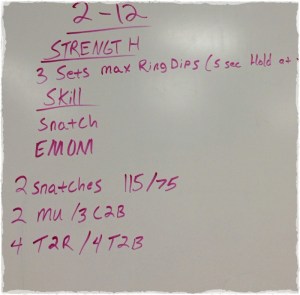 2-12
STRENGTH
3 Sets max Ring Dips (5 sec Hold at
Skill
Snatch
EMOM
2 snatches 115/75
2 MU /3 C2B
4 T2R / 4 T2B